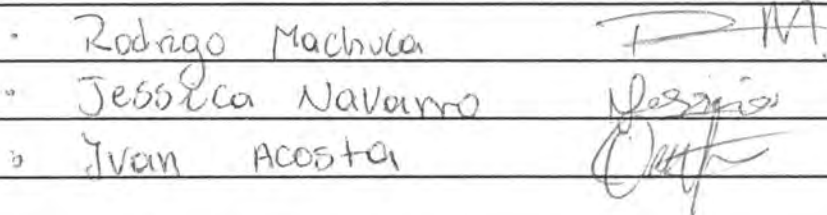 Rodrigo Machuca
Jessica Navarro
Ivan Acosta